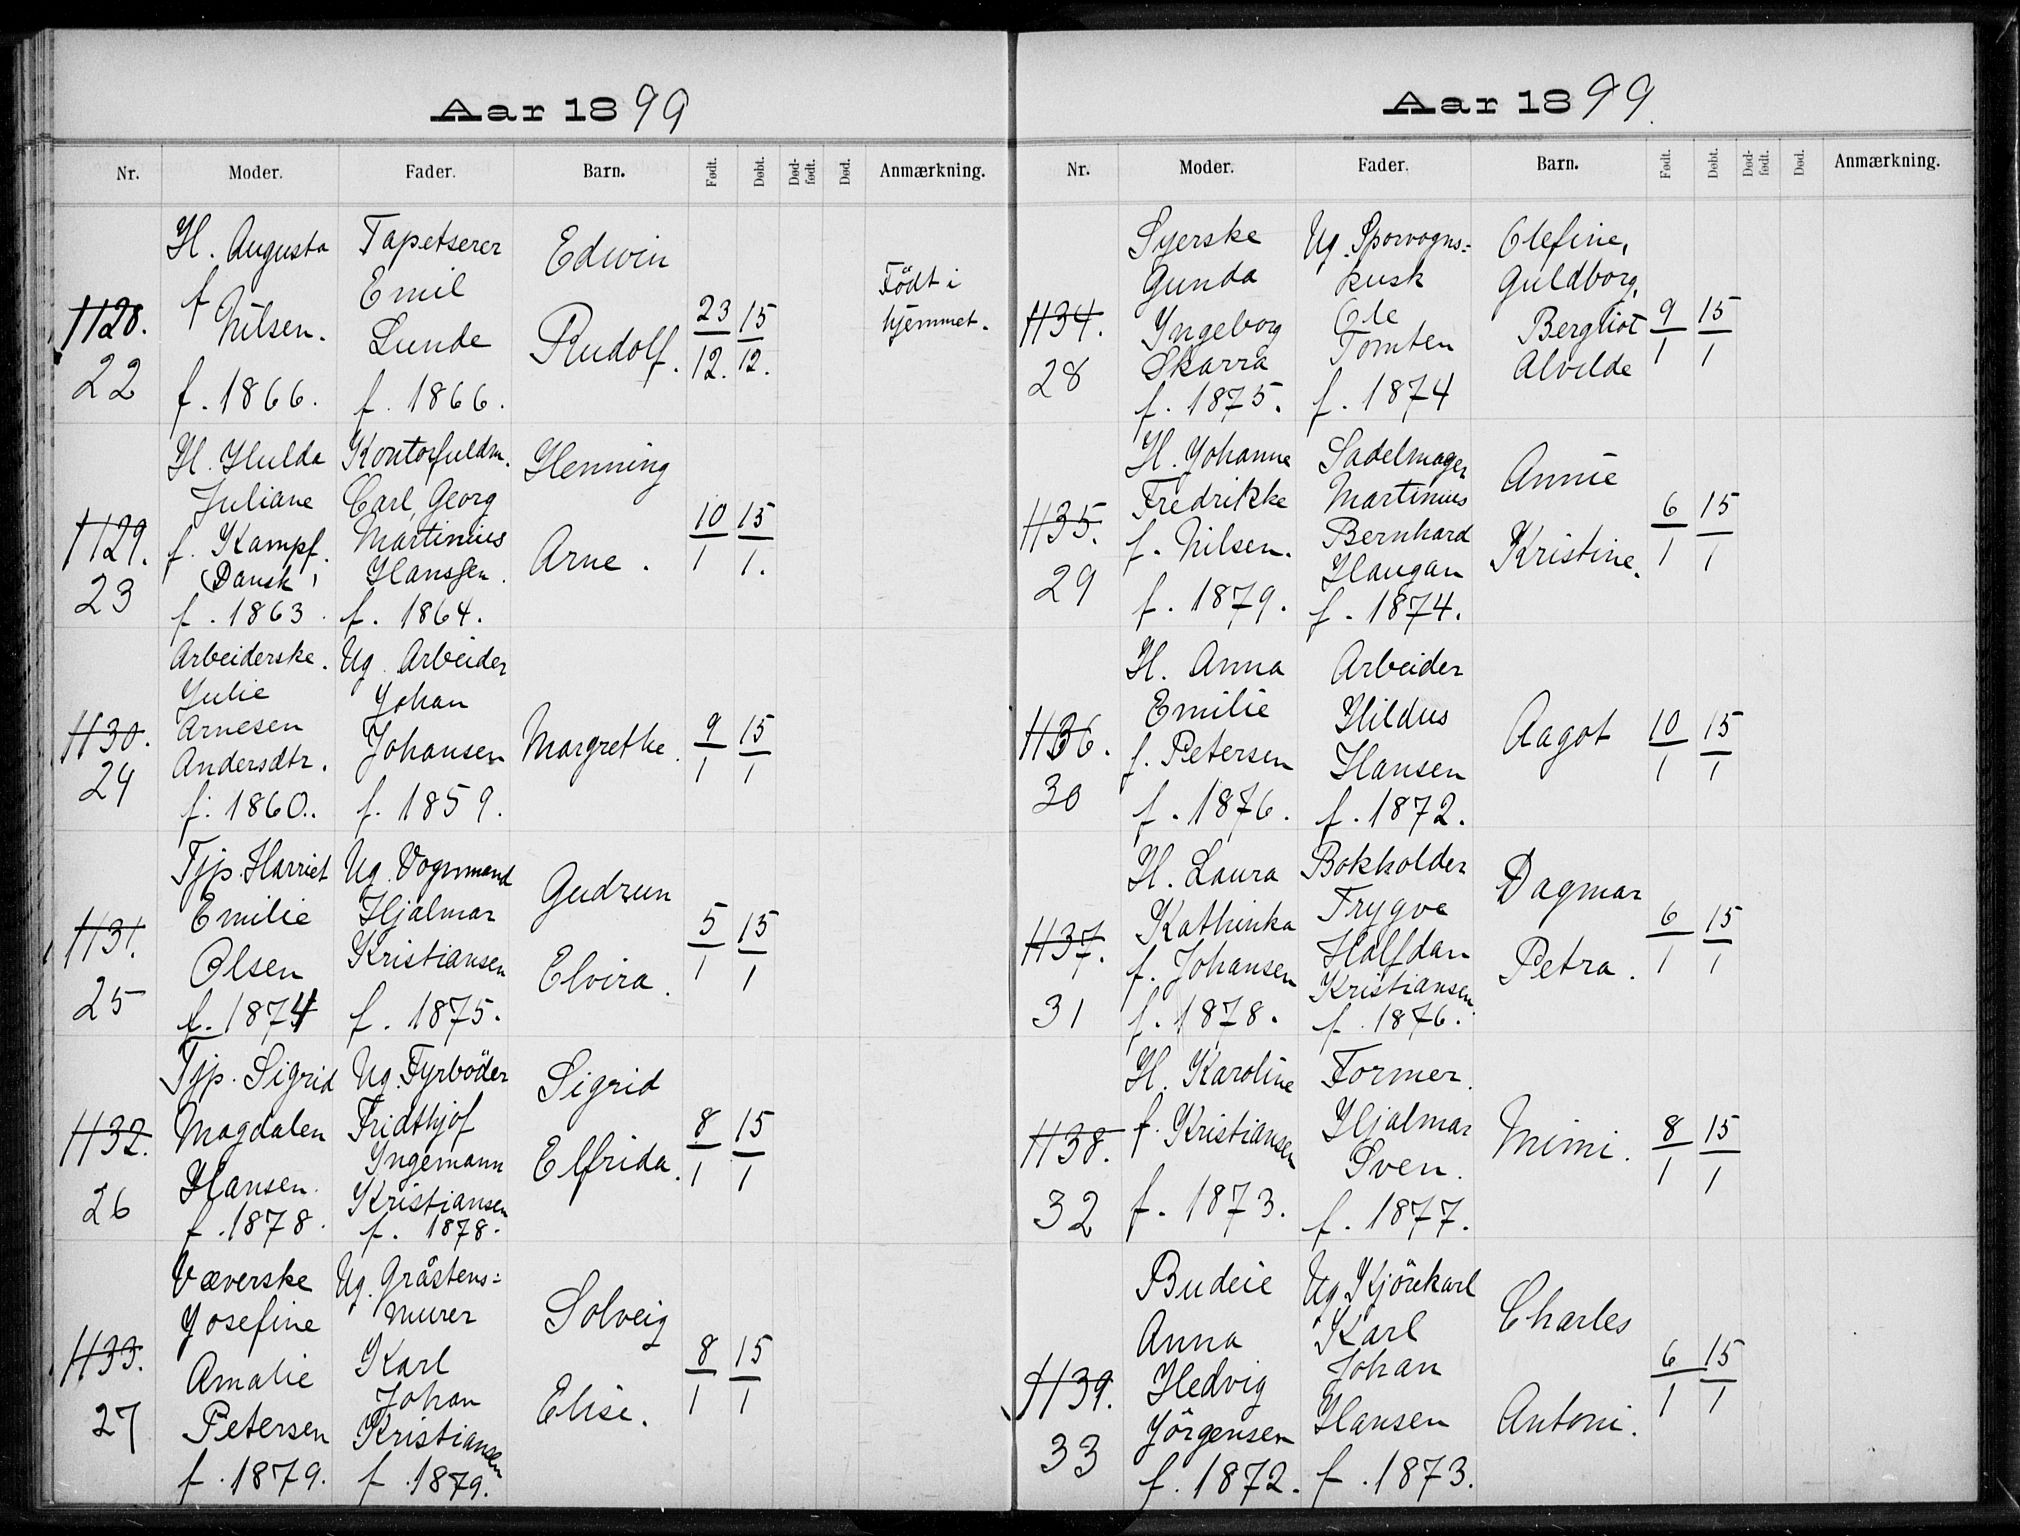 Aar 1899
Nr. Moder. Fader. Barn. Født. Døbt. Død-født. Død. Anmærkning.
1128.
22
H. Augusta
f
Nilsen.
f. 1866.
Tapetserer
Emil
Lunde
f. 1866.
Edwin
Rudolf.
23/12. 15/12.
Födt i
hjemmet.
1129.
23
H. Hulda
Juliane
f. Kampf.
Dansk,
f. 1863.
Kontorfuldm.
Carl, Georg
Martinius
Hanssen.
f. 1864.
Henning
Arne.
10/1 15/1.
1130.
24
Arbeiderske.
Julie
Arnesen
Andersdtr.
f. 1860..
Ug. Arbeider
Johan
Johansen
f. 1859.
Margrethe.
9/1 15/1
1131.
25
Tjp. Harriet
Emilie
Olsen
f. 1874
Ug. Vognmand
Hjalmar
Kristiansen
f. 1875.
Gudrun
Elvira.
5/1 15/1
1132.
26
Tjp. Sigrid
Magdalen
Hansen.
f. 1878.
Ug. Fyrböder
Fridthjof
Ingemann
Kristiansen
f. 1878.
Sigrid
Elfrida.
8/1 15/1
1133.
27
Væverske
Josefine
Amalie
Petersen
f. 1879.
Ug. Gråstens=
murer
Karl
Johan
Kristiansen
f. 1879.
Solveig
Elise.
8/1 15/1
Aar 1899.
Nr. Moder. Fader. Barn. Født. Døbt. Død-født. Død. Anmærkning.
1134.
28
Syerske
Gunda
Yngeborg
Skarra
f. 1875.
Ug. Sporvogns=
kusk
Ole
Tomten
f. 1874
Olefine,
Guldborg,
Bergliot
Alvilde
9/1 15/1
1135.
29
H. Johanne
Fredrikke
f. Nilsen.
f. 1879.
Sadelmager
Martinius
Bernhard
Haugan
f. 1874.
Annie
Kristine.
6/1 15/1
1136.
30
H. Anna
Emilie
f. Petersen
f. 1876.
Arbeider
Hildus
Hansen
f. 1872.
Aagot
10/1 15/1
1137.
31
H. Laura
Kathinka
f. Johansen
f. 1878.
Bokholder
Trygve
Halfdan
Kristiansen
f. 1876.
Dagmar
Petra.
6/1 15/1
1138.
32
H. Karoline
f. Kristiansen
f. 1873.
Former.
Hjalmar
Sven.
f. 1877.
Mimi.
8/1 15/1
1139.
33
Budeie
Anna
Hedvig
Jörgensen
f. 1872.
Ug. Kjörekarl
Karl
Johan
Hansen
f. 1873.
Charles
Antoni.
6/1 15/1